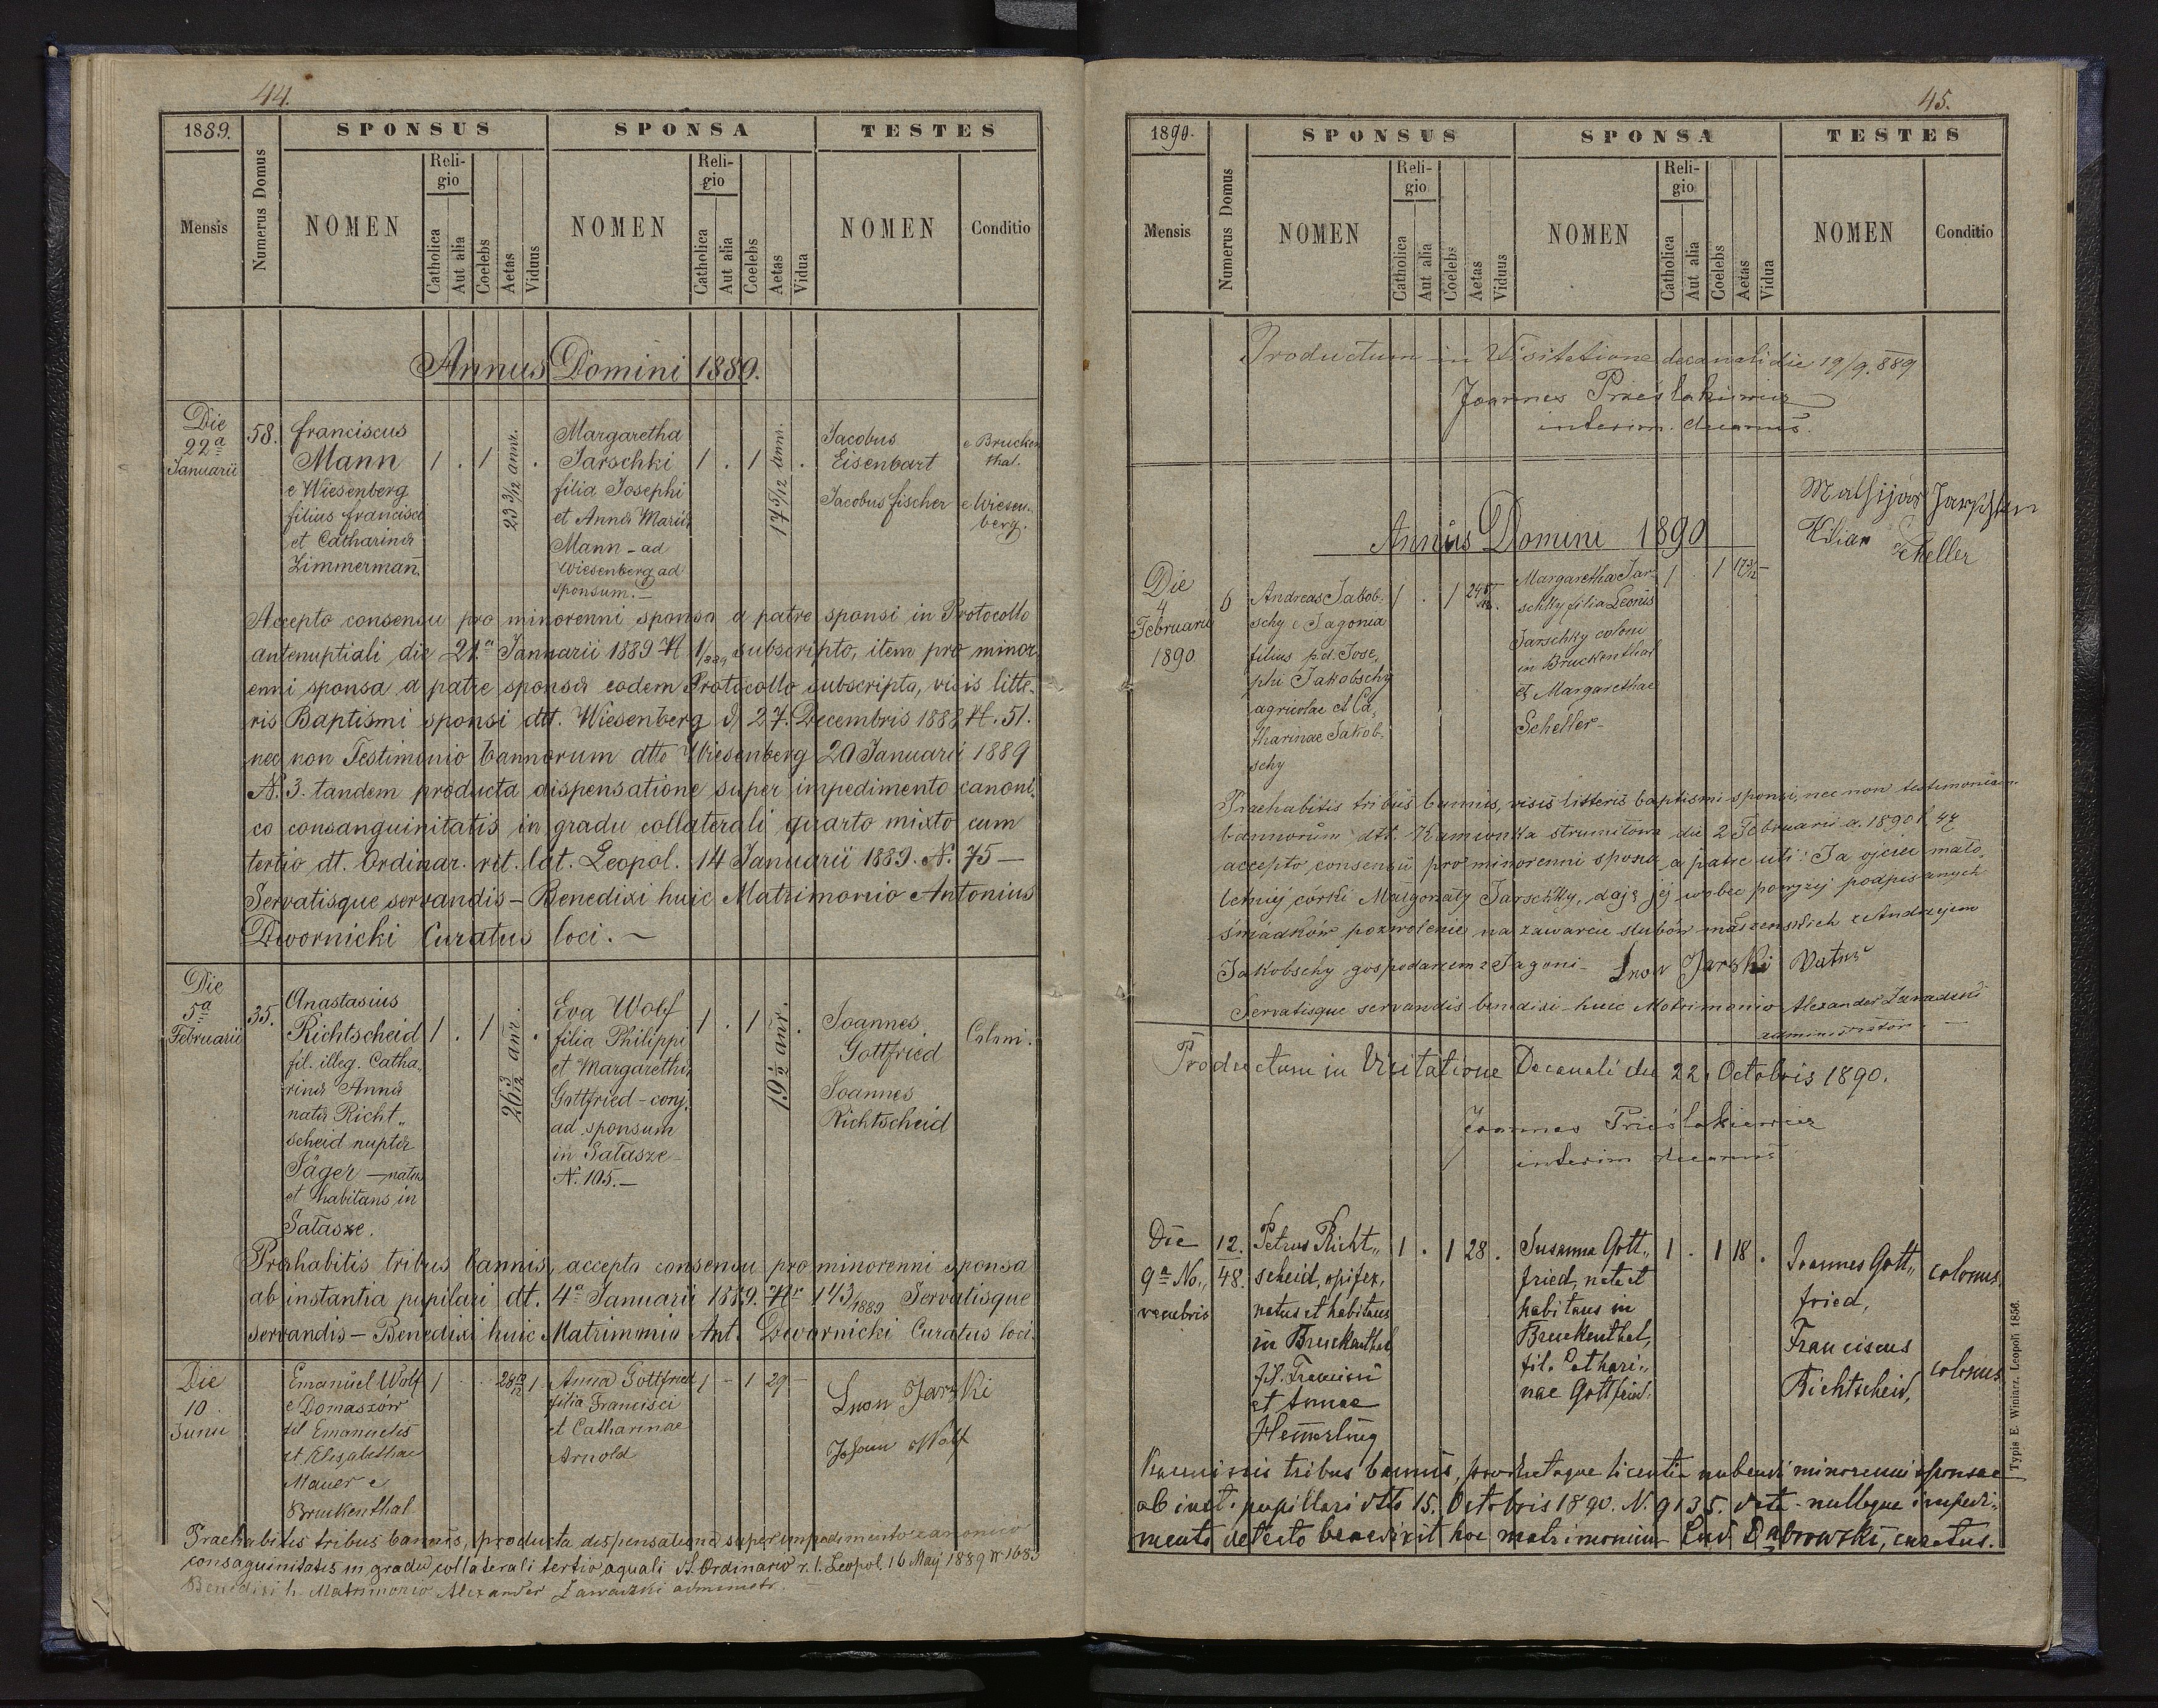 44.
1889.
SPONSUS
SPONSA
TESTES
Mensis
Numerus Domus
NOMEN
Reli-
gio
Catholica
Aut alia
Coelebs
Aetas
Viduus
NOMEN
Reli-
gio
Catholica
Aut alia
Coelebs
Aetas
Vidua
NOMEN
Conditio
Annus Domini 1889.
Die
22ª
Januarii
58.
Franciscus
Mann
e Wiesenberg
filius Francisci
et Catharinæ
Zimmerman.
1 . 1
23 3/12 annr.
.
Margaretha
Jarschki
filia Josephi
et Annæ Mariæ
Mann - ad
Wiesenberg ad
sponsum. -
1 . 1
17 5/12 annr.
.
Jacobus
Eisenbart
e Brucken
thal.
Jacobus Fischer
e Wiesen-
berg.
Accepto consensu pro minorenni sponso a patre sponsi in Protocollo
antenuptiali die 21.ª Januarii 1889 N 1/889 subscripto, item pro minor
enni sponsa a patre sponsæ eodem Protocollo subscripto, visis litte-
ris Baptismi sponsi dtt. Wiesenberg d 27. Decembris 1888 N. 51.
nec non Testimonio bannorum dtto Wiesenberg 20 Januarii 1889
N. 3. tandem producta dispensatione super impedimento canoni-
co consanguinitatis in gradu collaterali quarto mixto cum
tertio dt. Ordinar. rit. lat. Leopol. 14 Januarii 1889. N. 75 —
Servatisque servandis - Benedixi huic Matrimonio Antonius
Dwornicki Curatus loci. ~
Die
5ª
Februarii
35.
Anastasius
Richtscheid
fil. illeg. Catha,
rinæ Annæ
natæ Richt„
scheid nuptæ
Jäger - natus
et habitans in
Sałasze.
1 . 1
26 3/12 anr.
.
Eva Wolf
filia Philippi
et Margarethæ
Gottfried - conj.
ad sponsum
in Sałasze -
N. 105. -
1 . 1
19 2/12 anr
.
Joannes
Gottfried
Joannes
Richtscheid
Coloni.
Præhabitis tribus bannis, accepto consensu pro minorenni sponsa
ab instantia pupilari dt. 4ª Januarii 1889. Nr 143/1889 Servatisque
servandis - Benedixi huic Matrimonio Ant. Dwornicki Curatus loci.
Die
10
Junii
Emanuel Wolf
e Domaszów
fil Emanuelis
et Elisabethae
Mauer e
Bruckenthal
1
1
Anna Gottfried
filia Francisci
et Catharinae
Arnold
1 - 1 29 -
Lnon Jarski
Johann Wolf
Praehabitis tribus bannis, producta dispensatione super impedimento canonico
consaguinitatis in gradu collaterali tertio aquali dt. Ordinario r. l. Leopol. 16 Maij 1889 N 1683
Benedixi h. Matrimonio Alexander Zawadzki administr.
45.
1890.
SPONSUS
SPONSA
TESTES
Mensis
Numerus Domus
NOMEN
Reli-
gio
Catholica
Aut alia
Coelebs
Aetas
Viduus
NOMEN
Reli-
gio
Catholica
Aut alia
Coelebs
Aetas
Vidua
NOMEN
Conditio
Productum in Visitatione decanali die 19/9. 889
Joannes
interim. decanus.
Annus Domini 1890
Kilian Scheller
Die
4
Februarii
1890
6
Andreas Jakob-
schy e Jagonia
filius p.d. Jose,
phi Jakobschy
agricolae et Ca,
tharinae Jakob-
schy
1 . 1
Margaretha Jar-
schky filia Leonis
Jarschky coloni
in Bruckenthal
et Margarethae
Scheller -
1 . 1
17 3/12 -
Praehabitis tribus bannis, visis litteris baptismi sponsi, nec non testimonium
bannorum dtt. Kamionka strumiłowa die 2 Februarii a. 1890 l. 47
accepto consensu pro minorenni sponsa a patre uti: Ja ojciec mało,
letniej córki Małgorzaty Jarschky, daję jej wobec powyżej podpisanych
świadków pozwolenie na zawarcie ślubów małżenskich z Andrzejem
Jakobschy gospodarzem z Jagoni - Lnon Jarski Vater
Servatisque servandis benedixi huic Matrimonio Alexander Zawadzki
administrator. —
Productum in Visitatione Decanali die 22 Octobris 1890.
Joannes
interim decanus
Die
9ª No„
vembris
12.
48.
Petrus Richt„
scheid, opifex,
natus et habitans
in Bruckenthal
fil. Francisci
et Annae
Hemerling
1 . 1 28 .
Susanna Gott„
fried, nata et
habitans in
Bruckenthal,
fil. Cathari„
nae Gottfried.
1 . 1 18 .
Joannes Gott„
fried,
colonus,
Franciscus
Richtscheid,
colonus
Praemissis tribus bannis, productaque licentia nubendi minorenni sponsae
ab inst. pupillari dtto 15. Octobris 1890. N. 9135. - nulloque impedi„
mento detecto benedixit hoc matrimonium Dąbrowski, curatus.
Typis E. Winiarz, Leopoli 1856.